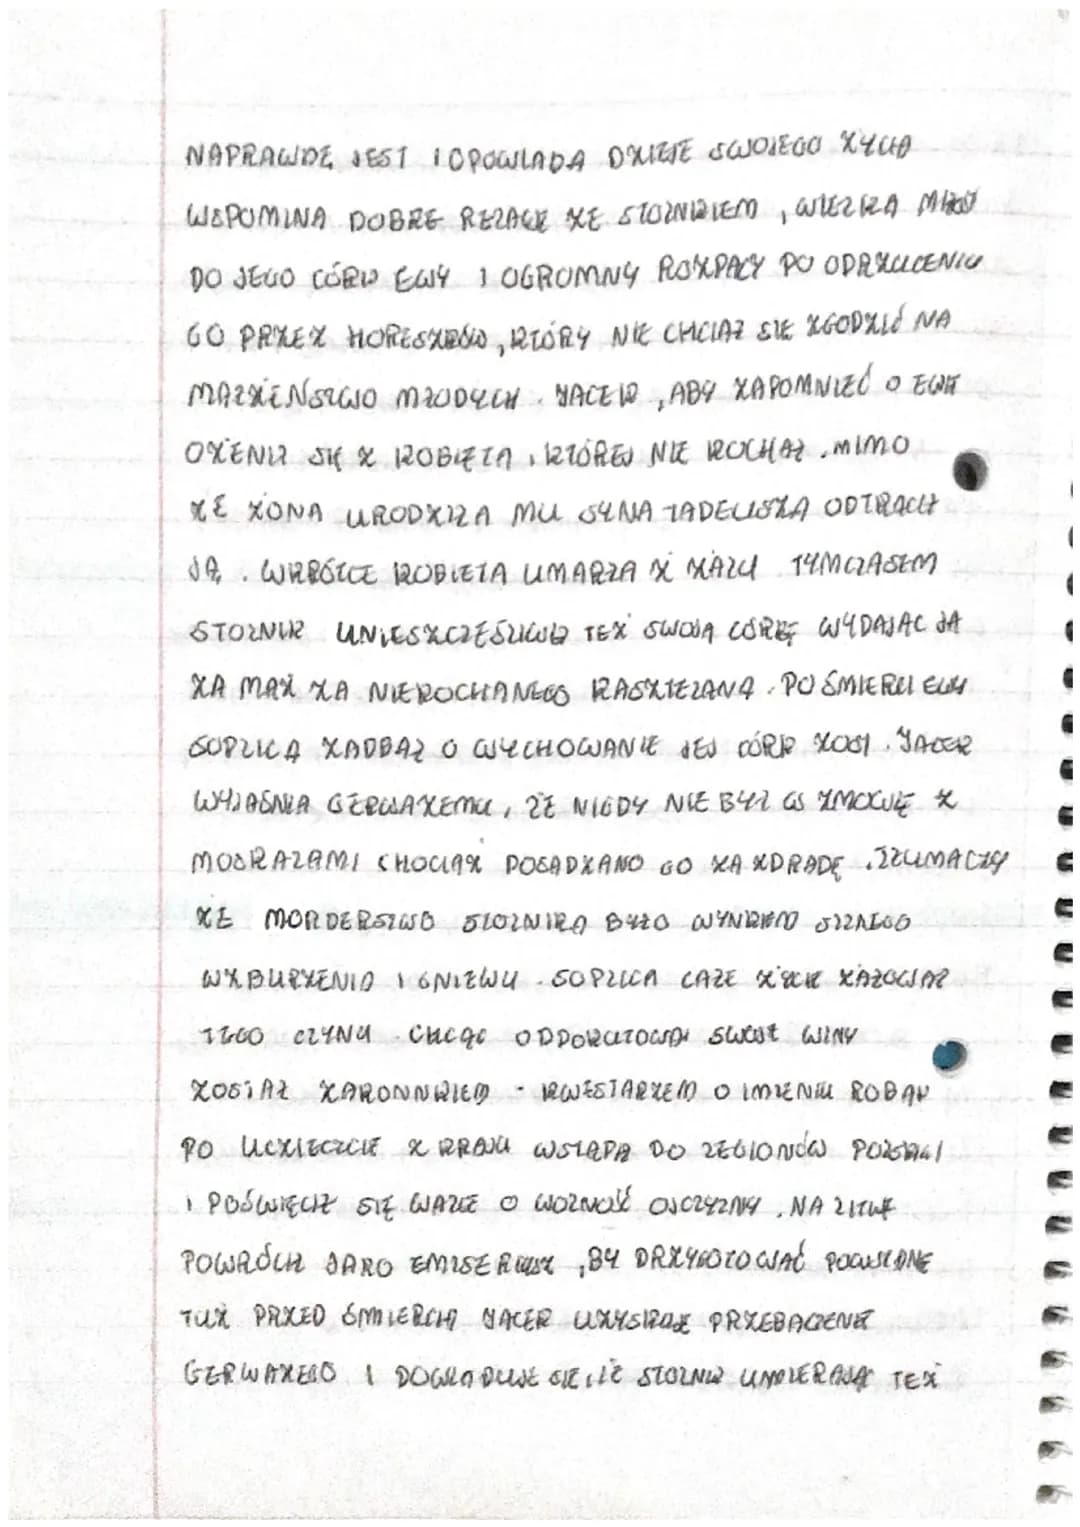 NAPRAWDĘ JEST I OPOWIADA DZIEJE SWOJEGO ŻYCIA
WSPOMINA DOBRE RELACJE ZE STOLNIKIEM, WIELKĄ MIŁOŚĆ
DO JEGO CÓRKI EWY I OGROMNY ROZPACZ PO ODRZUCENIU
GO PRZEZ HORESZKÓW, KTÓRY NIE CHCIAŁ SIĘ ZGODZIĆ NA
MAŁŻEŃSTWO MŁODYCH. JACEK, ABY ZAPOMNIEĆ O EWIE
OŻENIŁ SIĘ Z KOBIETĄ, KTÓREJ NIE KOCHAŁ. MIMO
ŻE ŻONA URODZIŁA MU SYNA TADEUSZA ODTRĄCIŁ
JĄ. WKRÓTCE KOBIETA UMARŁA Z ŻALU TYMCZASEM
STOLNIK UNIESZCZĘŚLIWIŁ TEŻ SWOJĄ CÓRKĘ WYDAJĄC JĄ
ZA MĄŻ ZA NIEKOCHANEGO KASZTELANA. PO ŚMIERCI EWY
SOPLICA ZADBAŁ O WYCHOWANIE JEJ CÓRKI ZOSI. JACEK
WYJAŚNIA GERWAZEMU, ŻE NIGDY NIE BYŁ W ZMOWIE Z
MOSKALAMI CHOCIAŻ POSĄDZANO GO ZA ZDRADĘ. TŁUMACZY
ŻE MORDERSTWO STOLNIKA BYŁO WYNIKIEM SILNEGO
WZBURZENIA I GNIEWU. SOPLICA CAŁE ŻYCIE ŻAŁOWAŁ
TEGO CZYNU. CHCĄC ODPOKUTOWAĆ SWOJE WINY
ZOSTAŁ ZAKONNIKIEM - KWESTARZEM O IMIENIU ROBAK
PO UCIECZCE Z KRAJU WSTĄPIŁ DO LEGIONÓW POLSKICH
I POŚWIĘCIŁ SIĘ WALCE O WOLNOŚĆ OJCZYZNY. NA LITWĘ
POWRÓCIŁ JAKO EMISARIUSZ, BY PRZYGOTOWAĆ POWSTANIE
TUŻ PRZED ŚMIERCIĄ JACEK UZYSKAŁ PRZEBACZENIE
GERWAZEGO I DOWIADUJE SIĘ, IŻ STOLNIK UMIERAJĄC TEŻ